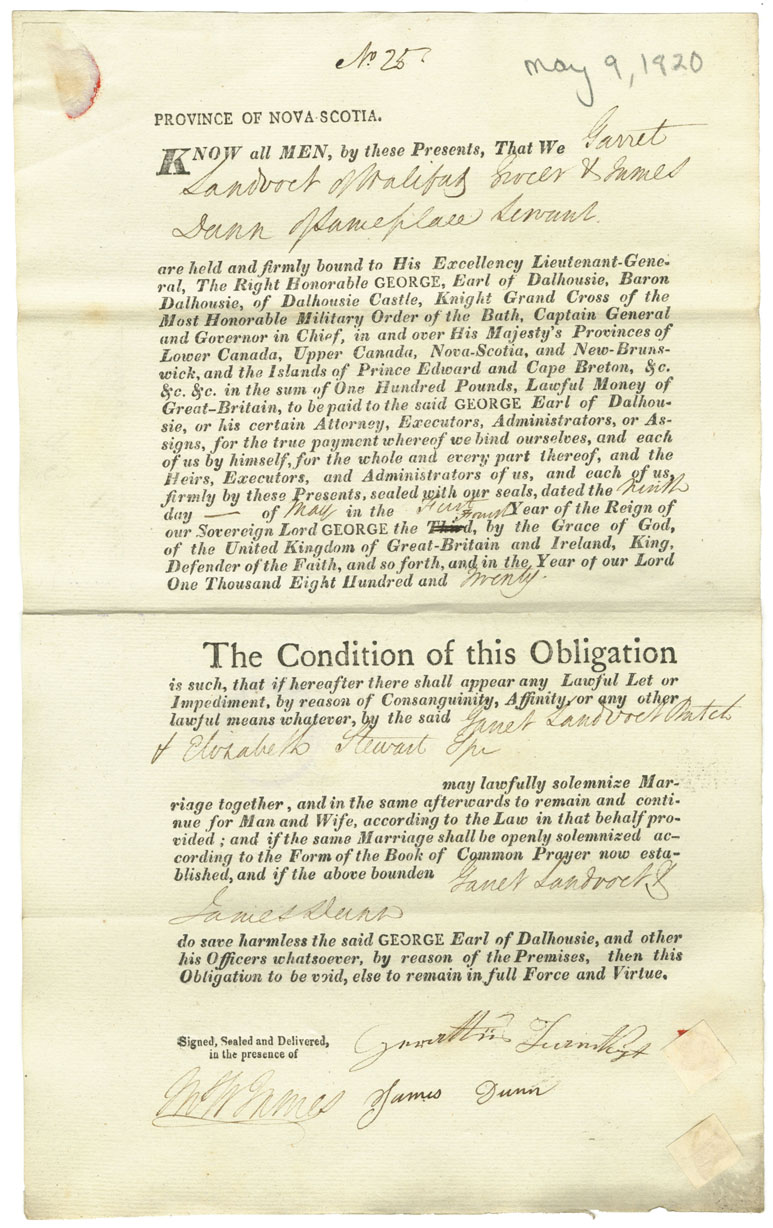 No 25
May 9, 1820
PROVINCE OF NOVA-SCOTIA.
KNOW all MEN, by these Presents, That We Garret
Landvoct of Halifax Grocer & James
Dunn of same place Servant.
are held and firmly bound to His Excellency Lieutenant-Gene-
ral, The Right Honorable GEORGE, Earl of Dalhousie, Baron
Dalhousie, of Dalhousie Castle, Knight Grand Cross of the
Most Honorable Military Order of the Bath, Captain General
and Governor in Chief, in and over His Majesty's Provinces of
Lower Canada, Upper Canada, Nova-Scotia, and New-Bruns-
wick, and the Islands of Prince Edward and Cape Breton, &c.
&c. &c. in the sum of One Hundred Pounds, Lawful Money of
Great-Britain, to be paid to the said GEORGE Earl of Dalhou-
sie, or his certain Attorney, Executors, Administrators, or As-
signs, for the true payment whereof we bind ourselves, and each
of us by himself, for the whole and every part thereof, and the
Heirs, Executors, and Administrators of us, and each of us,
firmly by these Presents, sealed with our seals, dated the Ninth
day — of May in the First Year of the Reign of
our Sovereign Lord GEORGE the Third Fourth, by the Grace of God,
of the United Kingdom of Great-Britain and Ireland, King,
Defender of the Faith, and so forth, and in the Year of our Lord
One Thousand Eight Hundred and Twenty.
The Condition of this Obligation
is such, that if hereafter there shall appear any Lawful Let or
Impediment, by reason of Consanguinity, Affinity, or any other
lawful means whatever, by the said Garret Landvoct Batch
& Elizabeth Stewart Spr
may lawfully solemnize Mar-
riage together, and in the same afterwards to remain and conti-
nue for Man and Wife, according to the Law in that behalf pro-
vided; and if the same Marriage shall be openly solemnized ac-
cording to the Form of the Book of Common Prayer now esta-
blished, and if the above bounden Garret Landvoct &
James Dunn
do save harmless the said GEORGE Earl of Dalhousie, and other
his Officers whatsoever, by reason of the Premises, then this
Obligation to be void, else to remain in full Force and Virtue.
Signed, Sealed and Delivered,
in the presence of
James Dunn